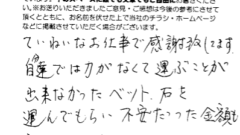 ※お送りいただきましたご意見・ご感想は今後の参考にさせて
頂くとともに、お名前を伏せた上で当社のチラシ・ホームページ
などに掲載させていただく場合がございます。
ていねいなお仕事で感謝致します。
自身では力がなくて運ぶことが
出来なかったベット、石を
運んでもらい不安だった金額も